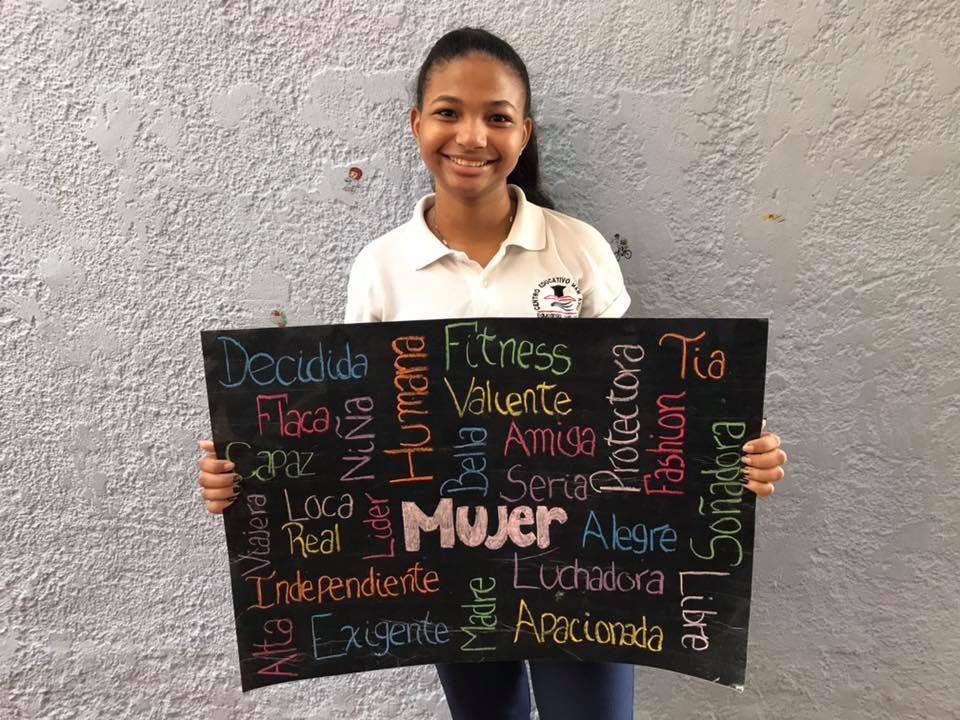 CENTRO EDUCATIVO
Decidida
Humana
Fitness
Tia
Flaca
Niña
Valiente
Protectora
Fashion
Capaz
Bella
Amiga
Soñadora
Seria
Viajera
Loca
Lider
Mujer
Alegre
Real
Independiente
Madre
Luchadora
Libre
Alta
Exigente
Apacionada